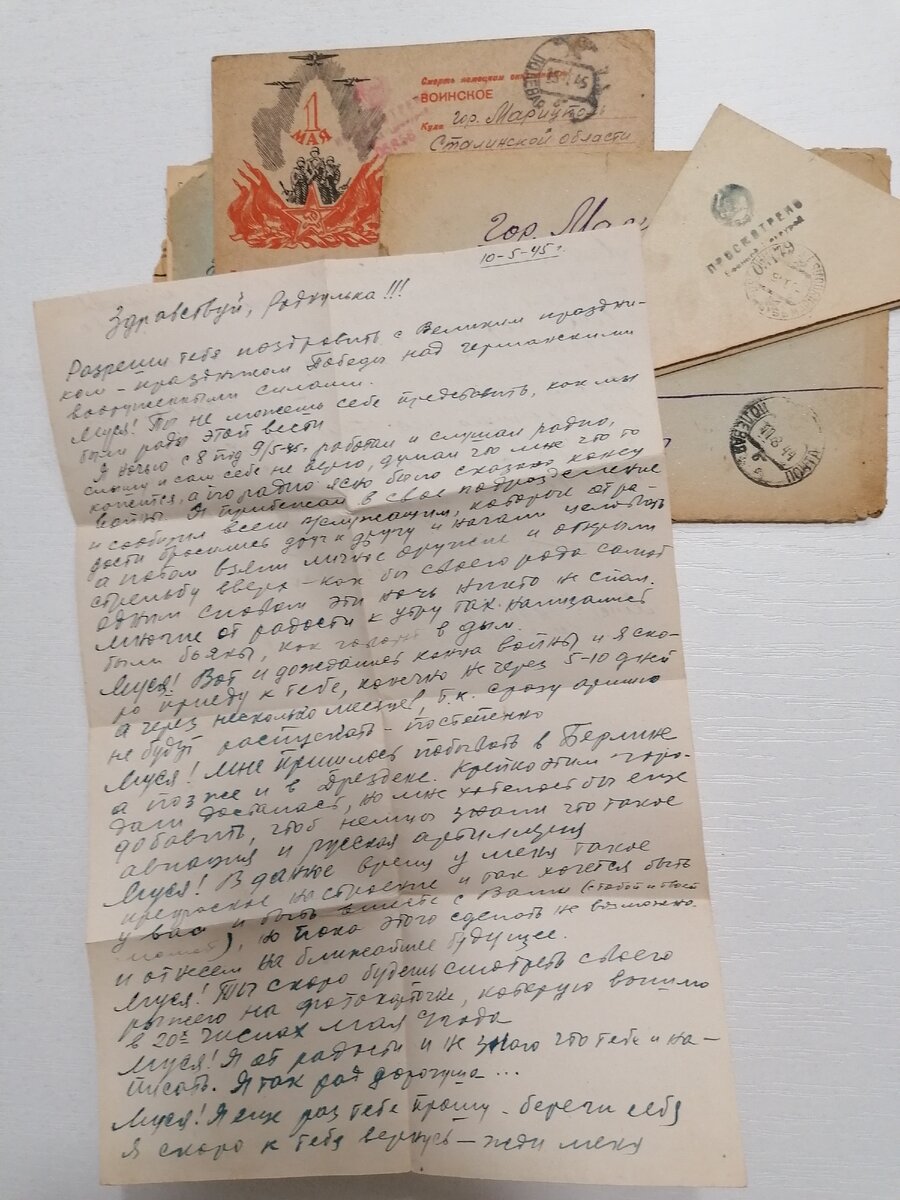 1
МАЯ
Смерть немецким
ВОИНСКОЕ
Куда гор. Мариуполь
Сталинской области
ПОЛЕВАЯ
45
гор. Мари
ПРОСМОТРЕНО
Военной Цензурой
ПОЛЕВАЯ
11 8 44
10-5-45 г.
Здравствуй, Родкулька!!!
Разреши тебя поздравить с Великим праздни-
ком - праздником Победы над германскими
вооруженными силами.
Муся! Ты не можешь себе представить, как мы
были рады этой вести
Я ночью с 8 под 9/5-45 работал и слушал радио,
слышу и сам себе не верю, думал что мне что то
кажется, а по радио ясно было сказано конец
войны. Я прибежал в свое подразделение
и сообщил всем служащим, которые от ра-
дости бросились друг к другу и начали целовать
а потом взяли личное оружие и открыли
стрельбу вверх - как бы своего рода салют
одним словом эту ночь никто не спал.
многие от радости к утру так нализались
были пьяны, как говорят в дым.
Муся! Вот и дождались конца войны и я ско-
ро приеду к тебе, конечно не через 5-10 дней
а через несколько месяцев, т.к. сразу армию
не будут распускать - постепенно
Муся! Мне пришлось побывать в Берлине
а позже и в Дрездене. Крепко этим горо-
дам досталось, но мне хотелось бы еще
добавить, чтоб немцы знали что такое
авиация и русская артиллерия
Муся! В данное время у меня такое
прекрасное настроение и так хочется быть
у вас и быть вместе с Вами (с тобой и твоей
мамой), но пока этого сделать не возможно
и отнесем на ближайшее будущее.
Муся! Ты скоро будешь смотреть своего
рыжего на фотокарточке, которую вышлю
в 20х числах мая с/года
Муся! Я от радости и не знаю что тебе и на-
писать. Я так рад дорогуша...
Муся! Я еще раз тебе прошу - береги себя
Я скоро к тебе вернусь - жди меня